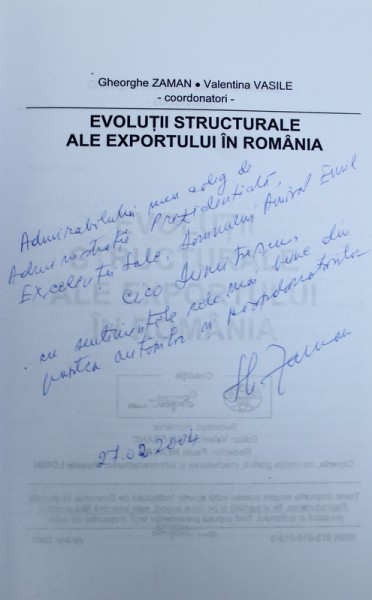 Gheorghe ZAMAN • Valentina VASILE
- coordonatori -
EVOLUȚII STRUCTURALE
ALE EXPORTULUI ÎN ROMÂNIA
Admirabilului meu coleg de
Administrație Prezidențială,
Excelenței Sale, Domnului Amiral Emil
Cico Dumitrescu,
cu sentimentele cele mai bune din
partea autorilor și coordonatorilor
Gh. Zaman
27.02.2004